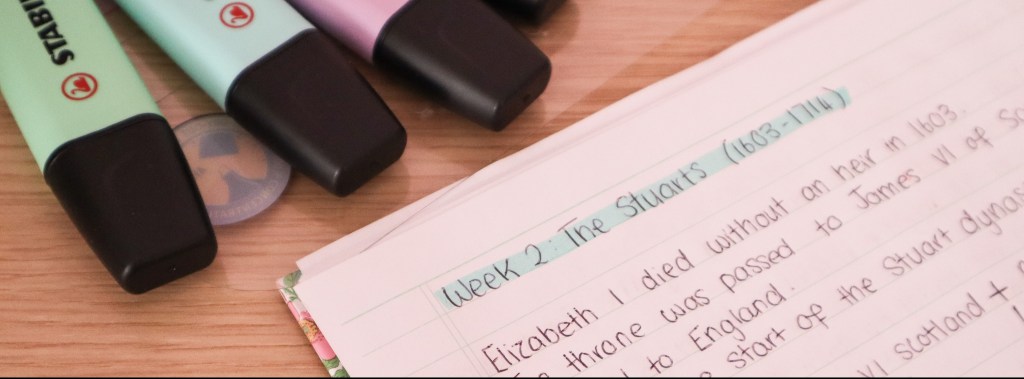 STABI
Week 2: The Stuarts (1603-1714)
Elizabeth I died without an heir in 1603.
throne was passed to James VI of Sc
to England.
start of the Stuart dynas
VI scotland +